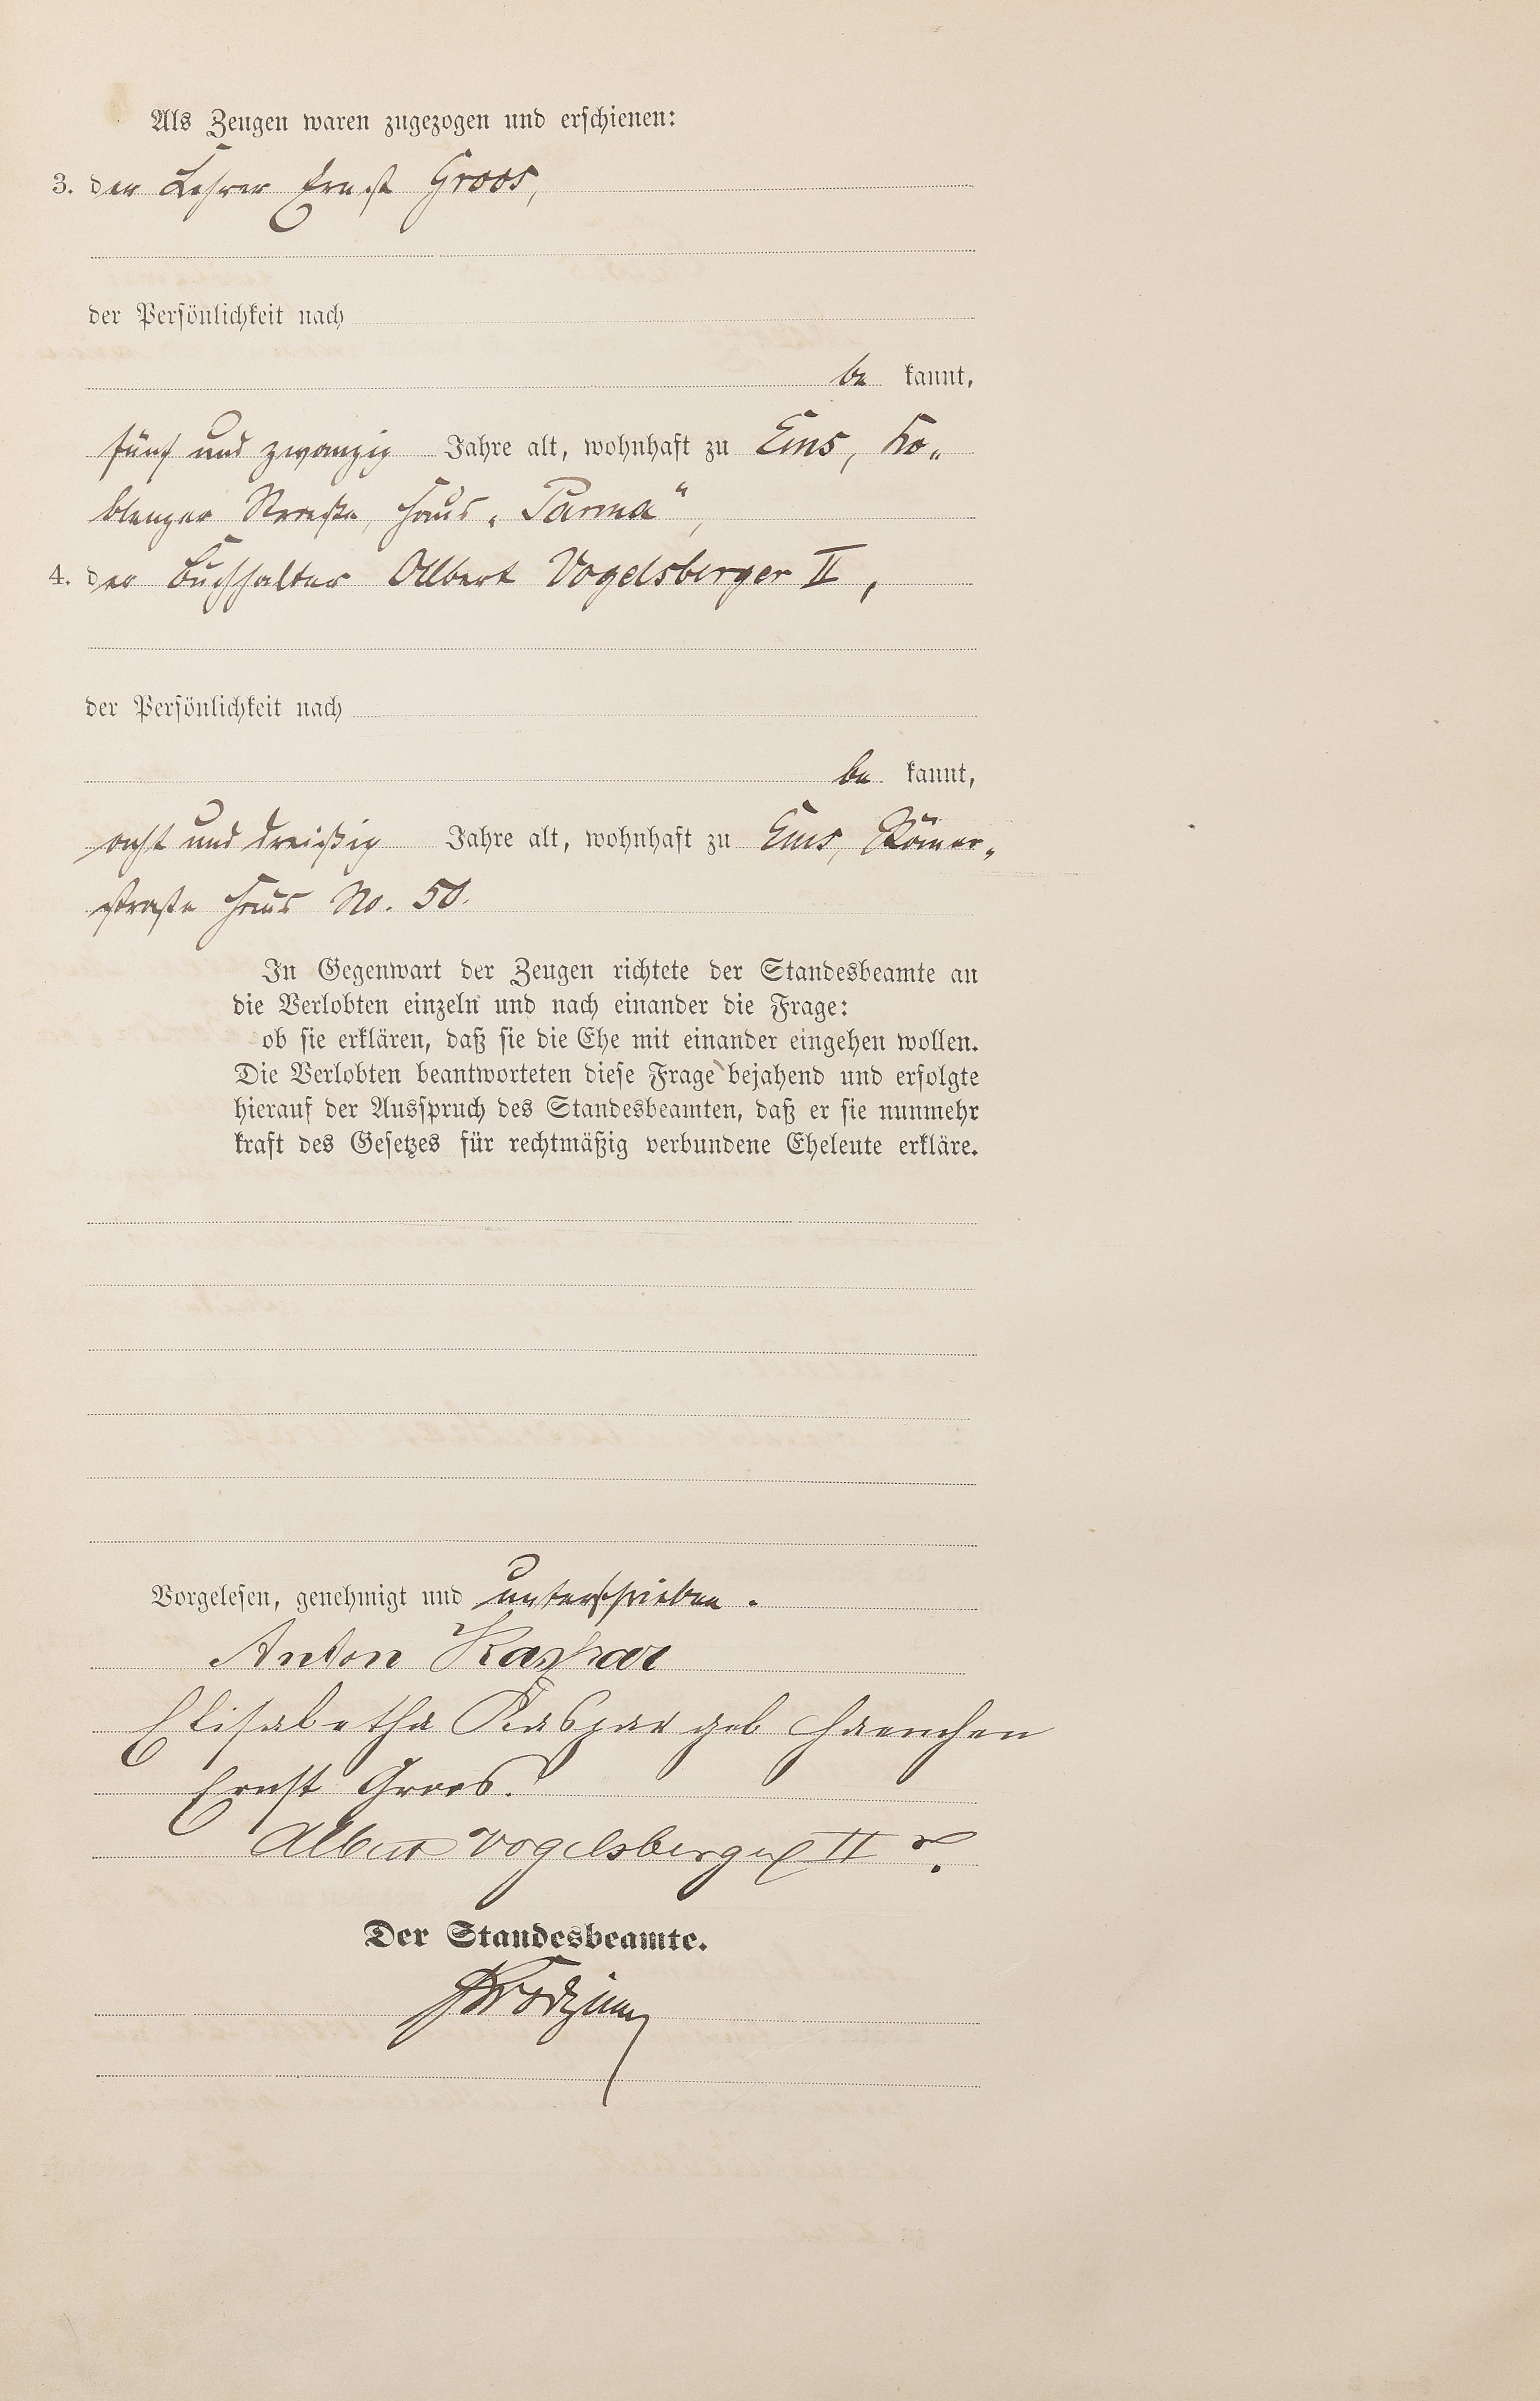 Als Zeugen waren zugezogen und erschienen:
3. der Lehrer Ernst Groos,
der Persönlichkeit nach
be kannt,
fünf und zwanzig Jahre alt, wohnhaft zu Ems, Ko„
blenzer Straße, Haus „Parma“,
4. der Buchhalter Albert Vogelsberger II,
der Persönlichkeit nach
be kannt,
acht und dreißig Jahre alt, wohnhaft zu Ems, Römer„
straße Haus No. 50.
In Gegenwart der Zeugen richtete der Standesbeamte an
die Verlobten einzeln und nach einander die Frage:
ob sie erklären, daß sie die Ehe mit einander eingehen wollen.
Die Verlobten beantworteten diese Frage bejahend und erfolgte
hierauf der Ausspruch des Standesbeamten, daß er sie nunmehr
kraft des Gesetzes für rechtmäßig verbundene Eheleute erkläre.
Vorgelesen, genehmigt und unterschrieben.
Anton Kaspar
Elisabetha Kaspar geb Haenchen
Ernst Groos.
Albert Vogelsberger II
Der Standesbeamte.